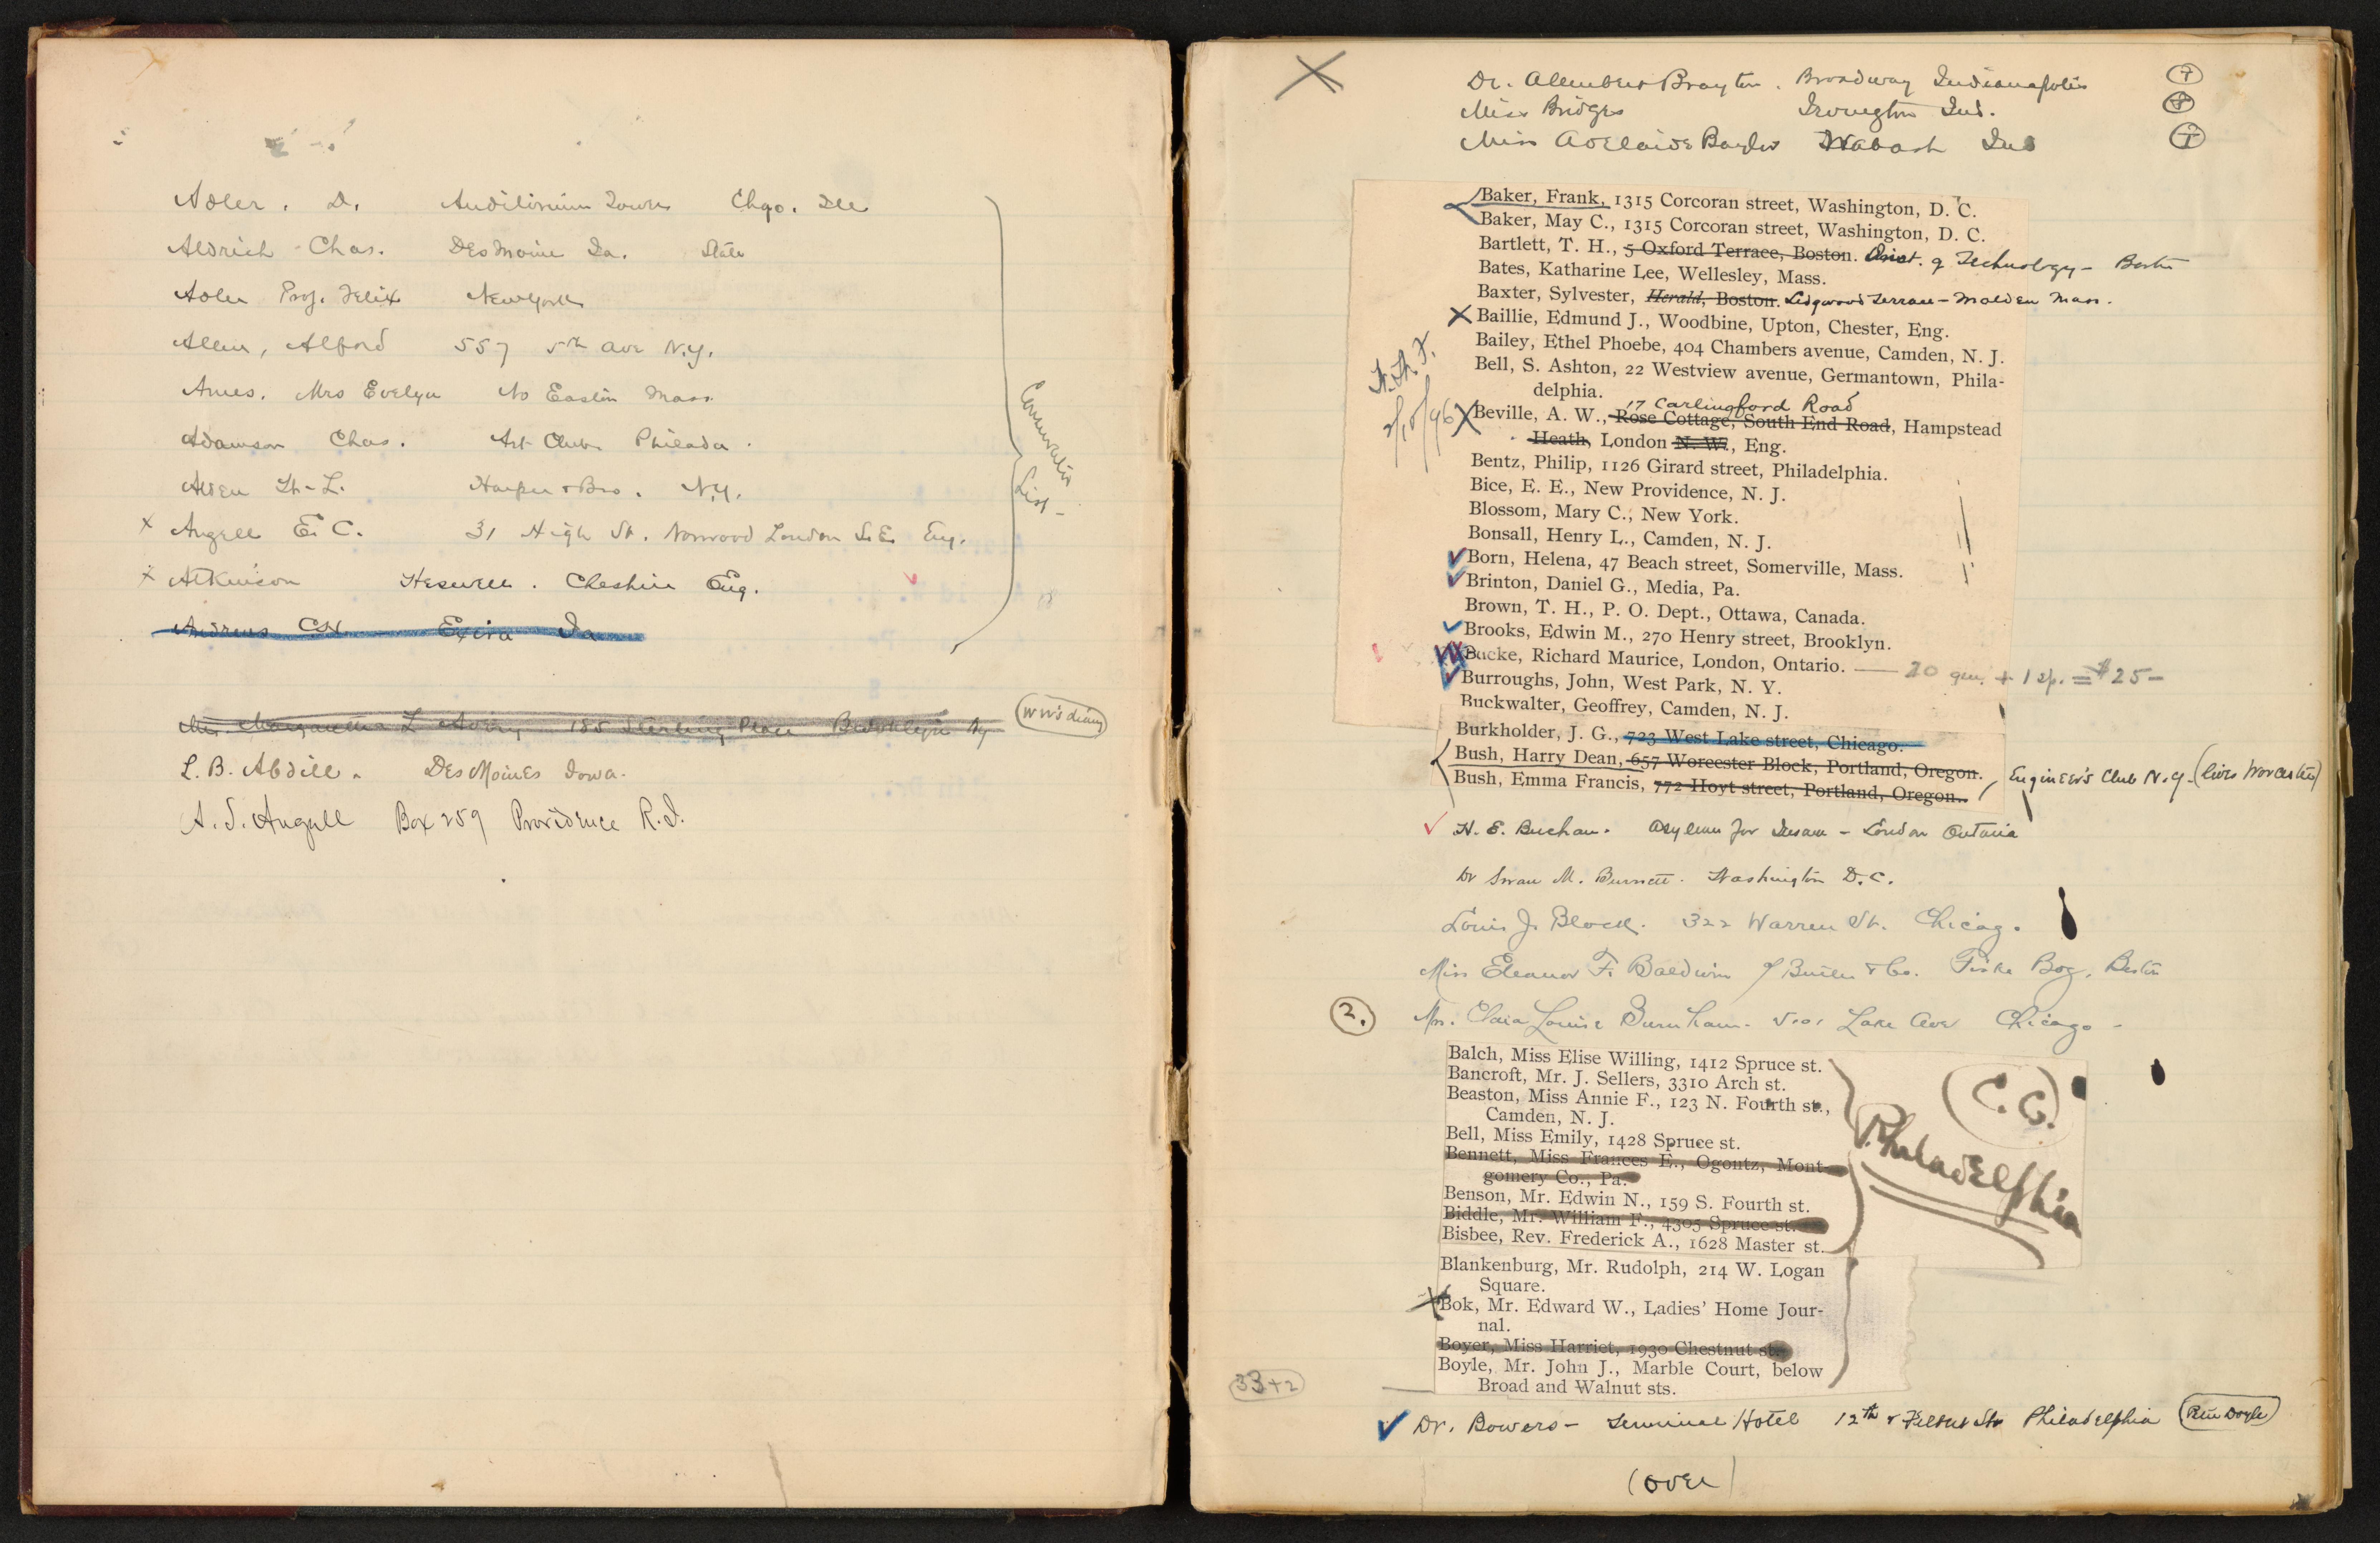 Adler. D. Auditorium Tower Chgo. Ill
Aldrich - Chas. Des Moine Ia. State
Adler Prof. Felix New York
Allen, Alford 557 5th Ave N.Y.
Ames. Mrs Evelyn No Easton Mass.
Adamson Chas. Art Club Philada.
Alden H. L. Harper & Bro. N.Y.
x Angell E. C. 31 High St. Norwood London S.E. Eng.
x Atkinson Heswell. Cheshire Eng.
Andrews C.H. Exira Ia
Conservator
List -
Mrs. Margaretta L Avery 185 Sterling Place Brooklyn Ny
WW's diary
L. B. Abdill. Des Moines Iowa.
A. J. Angell Box 259 Providence R.I.
X
Dr. Alembert Brayton. Broadway Indianapolis 7
Miss Bridges Irvington Ind. 8
Miss Adelaide Baylor Wabash Ind
Baker, Frank, 1315 Corcoran street, Washington, D. C.
Baker, May C., 1315 Corcoran street, Washington, D. C.
Bartlett, T. H., 5 Oxford Terrace, Boston. Inst. of Technology - Boston
Bates, Katharine Lee, Wellesley, Mass.
Baxter, Sylvester, Herald, Boston. Ledgwood Terrace - Malden Mass.
X Baillie, Edmund J., Woodbine, Upton, Chester, Eng.
Bailey, Ethel Phoebe, 404 Chambers avenue, Camden, N. J.
Bell, S. Ashton, 22 Westview avenue, Germantown, Phila-
delphia.
17 Carlingford Road
X Beville, A. W., Rose Cottage, South End Road, Hampstead
Heath, London N. W., Eng.
Bentz, Philip, 1126 Girard street, Philadelphia.
Bice, E. E., New Providence, N. J.
Blossom, Mary C., New York.
Bonsall, Henry L., Camden, N. J.
Born, Helena, 47 Beach street, Somerville, Mass.
Brinton, Daniel G., Media, Pa.
Brown, T. H., P. O. Dept., Ottawa, Canada.
Brooks, Edwin M., 270 Henry street, Brooklyn.
Bucke, Richard Maurice, London, Ontario. — 20 gen. + 1 sp. = $25-
Burroughs, John, West Park, N. Y.
Buckwalter, Geoffrey, Camden, N. J.
Burkholder, J. G., 723 West Lake street, Chicago.
Bush, Harry Dean, 657 Worcester Block, Portland, Oregon.
Bush, Emma Francis, 772 Hoyt street, Portland, Oregon.
Engineer's Club N.Y. (lives Worcester)
H. E. Buchan. Asylum for Insane - London Ontario
Dr Swan M. Burnett. Washington D.C.
Louis J. Block. 322 Warren St. Chicago.
Miss Eleanor F. Baldwin Boston
2. Mrs. Clara Louise Burnham. Lake Ave Chicago -
Balch, Miss Elise Willing, 1412 Spruce st.
Bancroft, Mr. J. Sellers, 3310 Arch st.
Beaston, Miss Annie F., 123 N. Fourth st.,
Camden, N. J.
Bell, Miss Emily, 1428 Spruce st.
Bennett, Miss Frances E., Ogontz, Mont-
gomery Co., Pa.
Benson, Mr. Edwin N., 159 S. Fourth st.
Biddle, Mr. William F., 4305 Spruce st.
Bisbee, Rev. Frederick A., 1628 Master st.
C. C.
Philadelphia
Blankenburg, Mr. Rudolph, 214 W. Logan
Square.
X Bok, Mr. Edward W., Ladies' Home Jour-
nal.
Boyer, Miss Harriet, 1930 Chestnut st.
Boyle, Mr. John J., Marble Court, below
Broad and Walnut sts.
33+2
Dr. Bowers - Terminal Hotel 12th & Filbert Sts Philadelphia
(over)